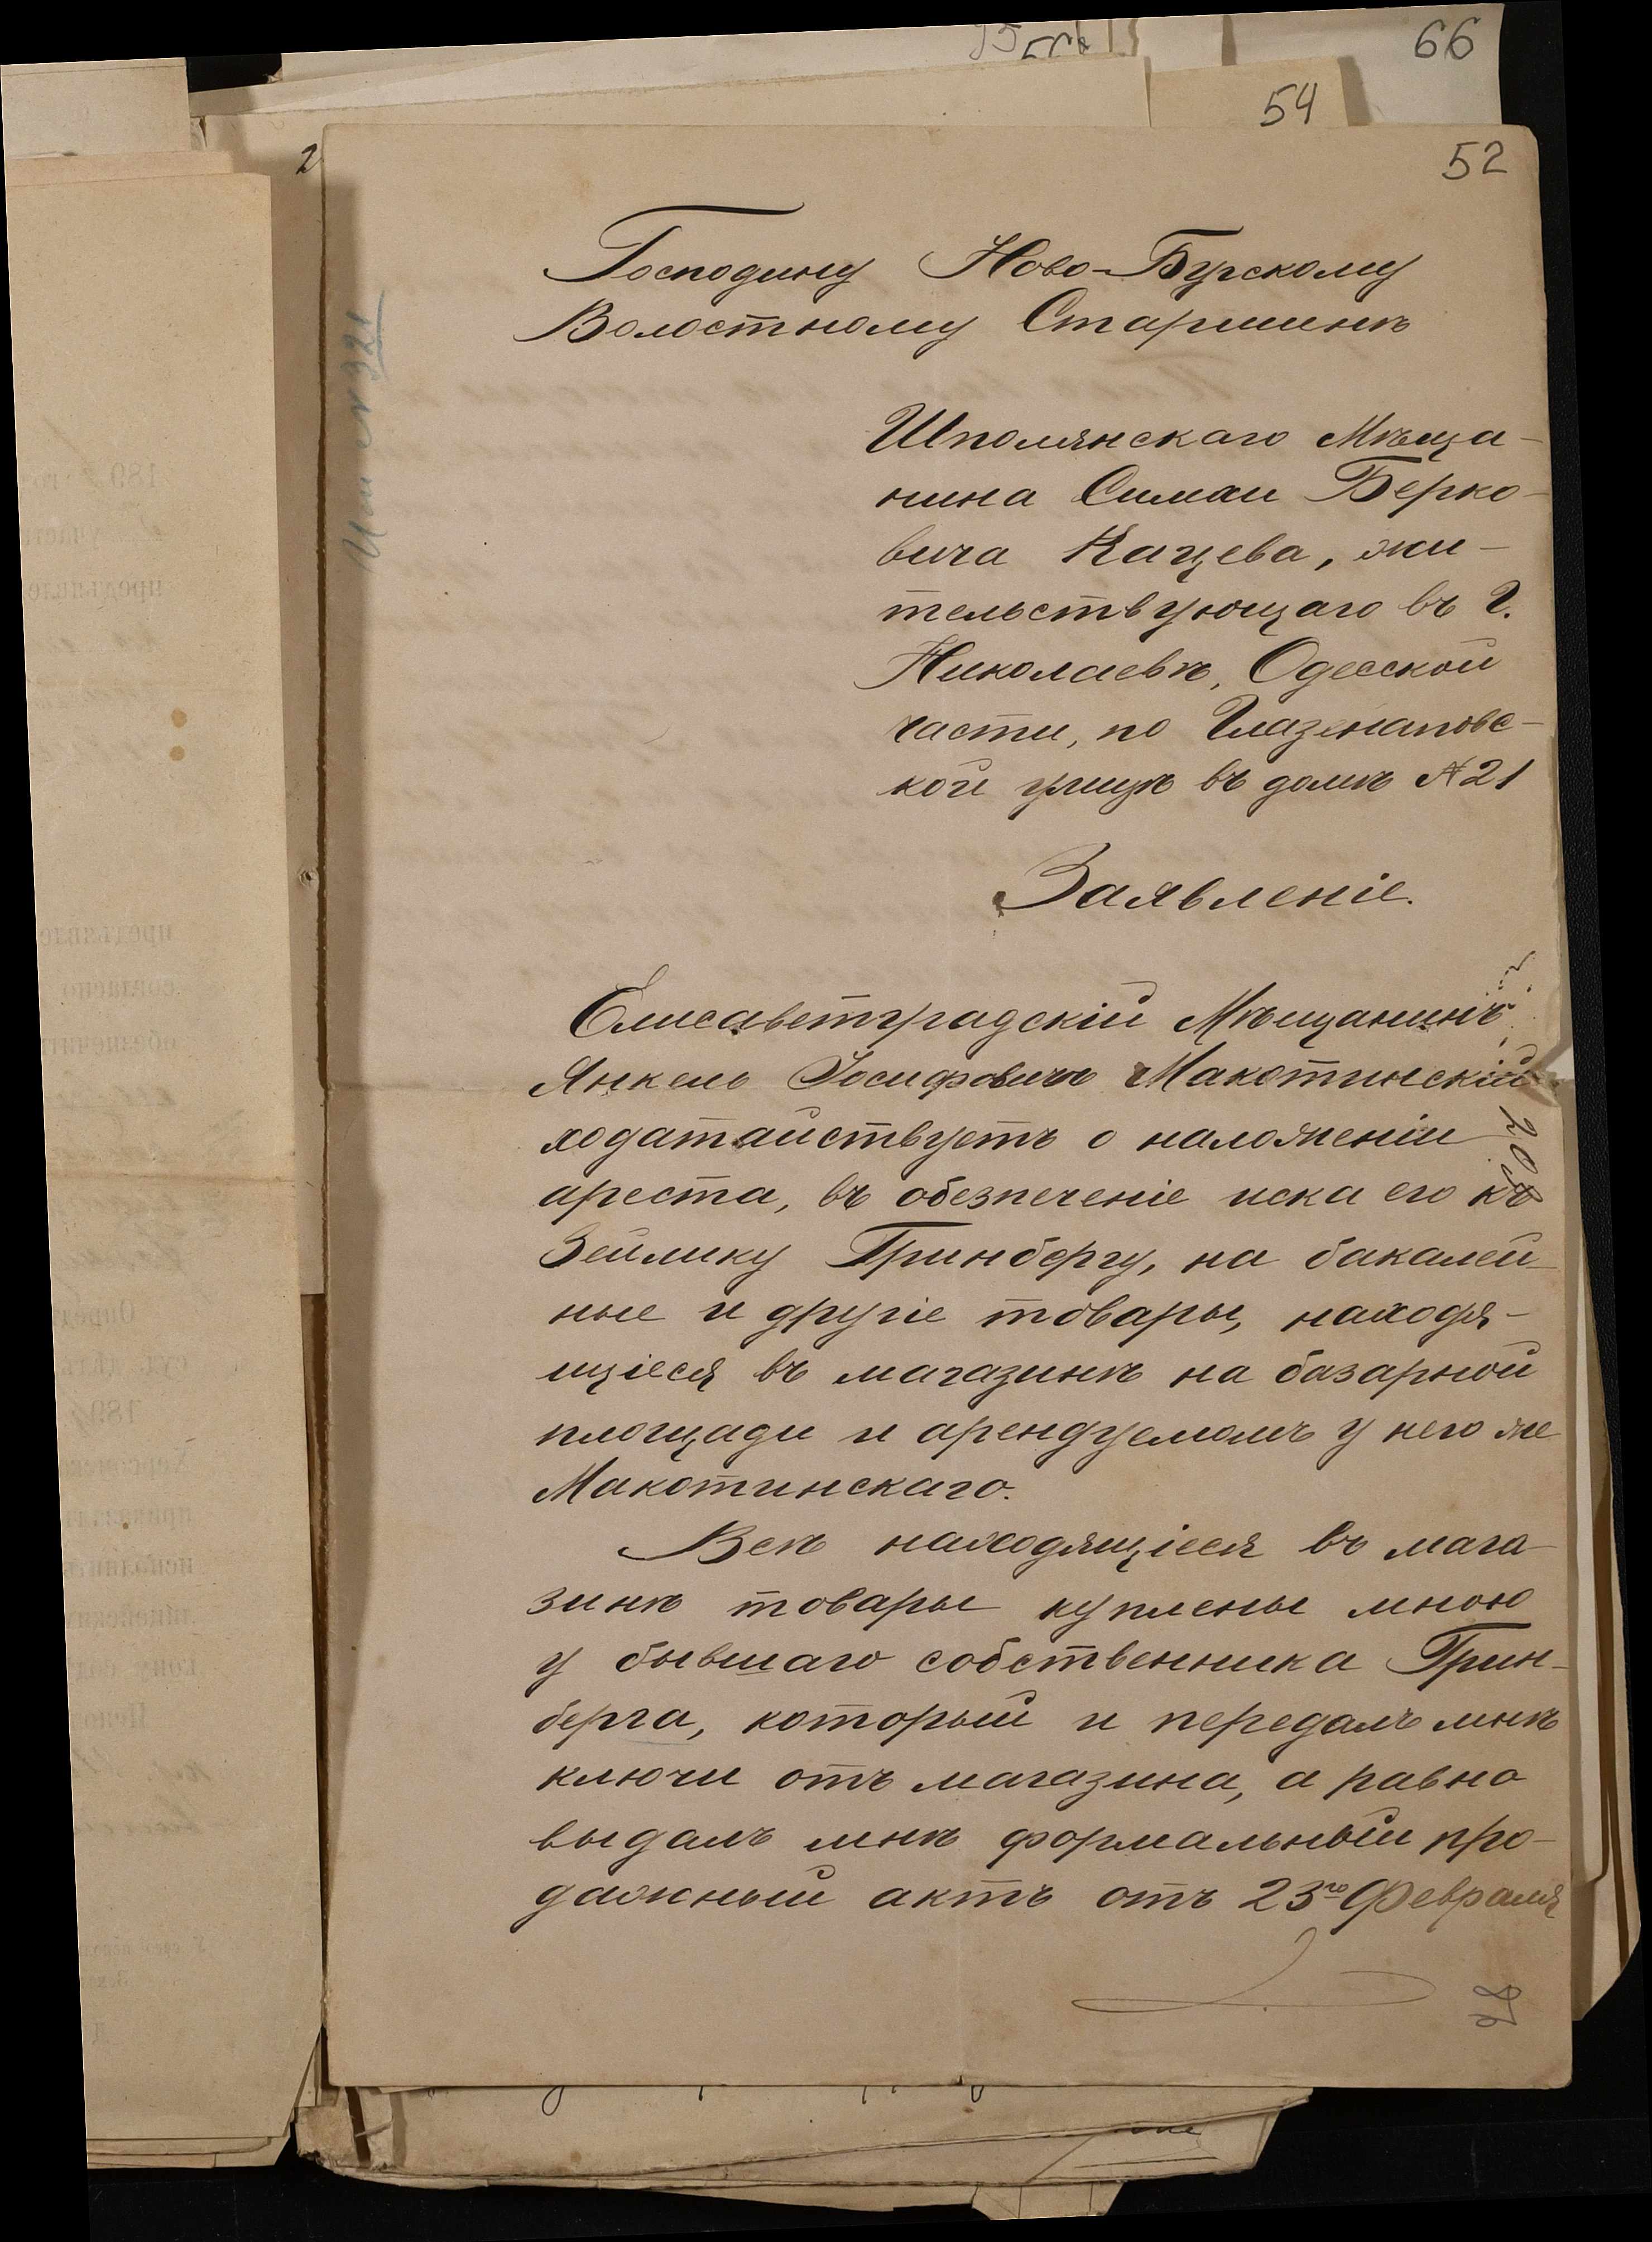 66
54
52
Господину Ново-Бугскому
Волостному Старшинѣ
Шполянскаго Мѣща-
нина Симхи Берко-
вича Кацева, жи-
тельствующаго въ г.
Николаевѣ, Одесской
части, по Глазенаповс-
кой улицѣ въ домѣ №21
Заявленіе.
Елисаветградскій Мѣщанинъ
Янкель Іосифовичъ Макотинскій
ходатайствуетъ о наложеніи
ареста, въ обезпеченіе иска его къ
Зейлику Гринбергу, на бакалей-
ные и другіе товары, находя-
щіеся въ магазинѣ на базарной
площади и арендуемомъ у него же
Макотинскаго.
Всѣ находящіеся въ мага-
зинѣ товары куплены мною
у бывшаго собственника Грин-
берга, который и передалъ мнѣ
ключи отъ магазина, а равно
выдалъ мнѣ формальный про-
дажный актъ отъ 23го Февраля